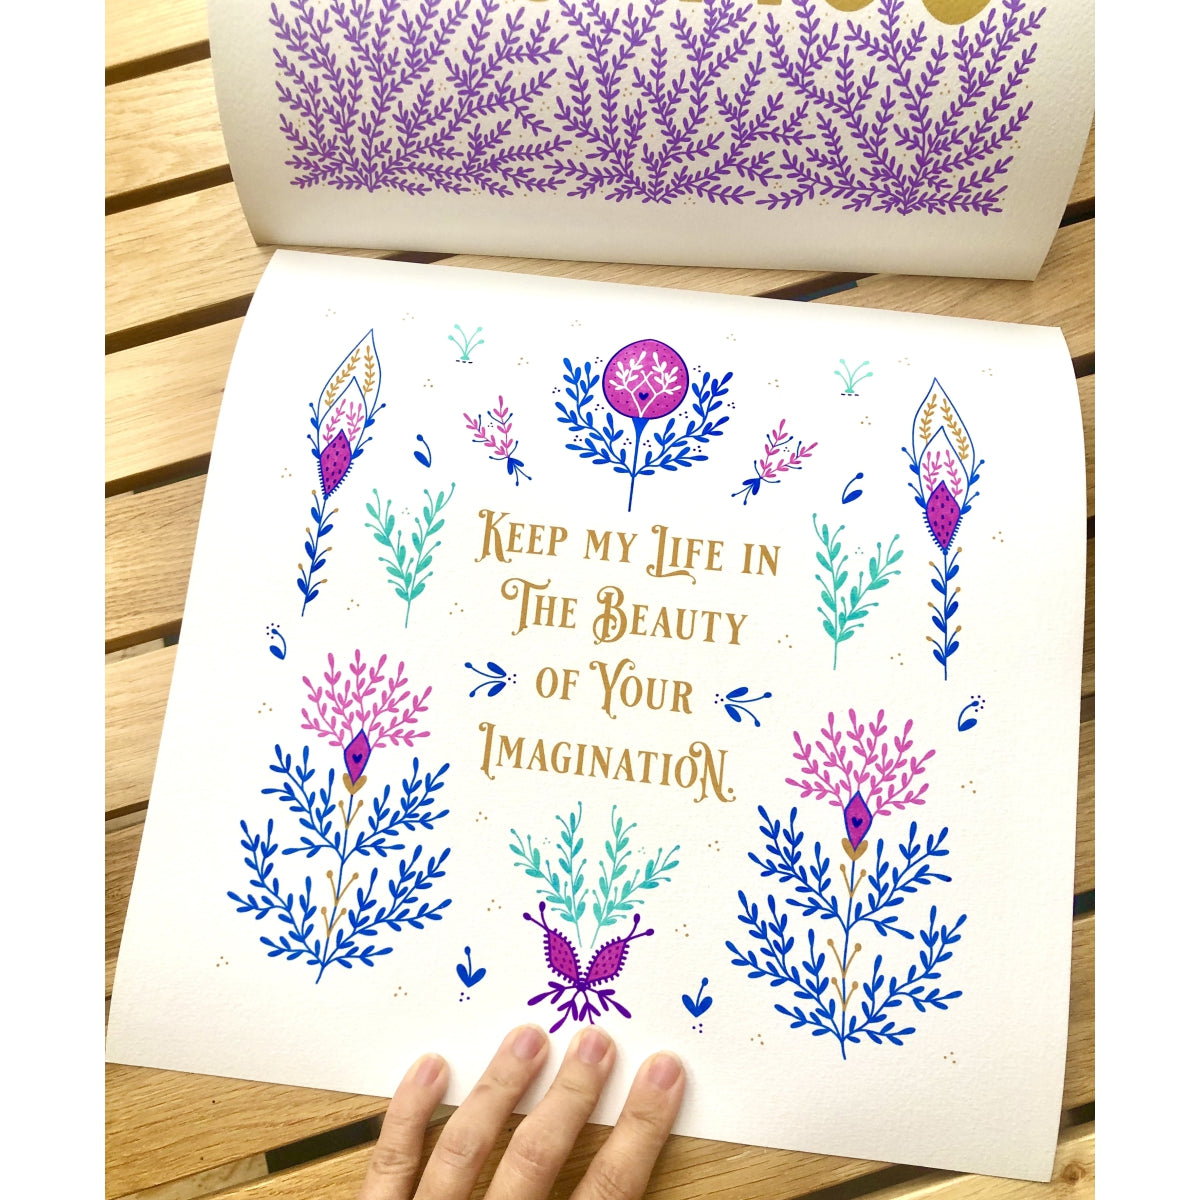 Keep my Life in
The Beauty
of Your
Imagination.